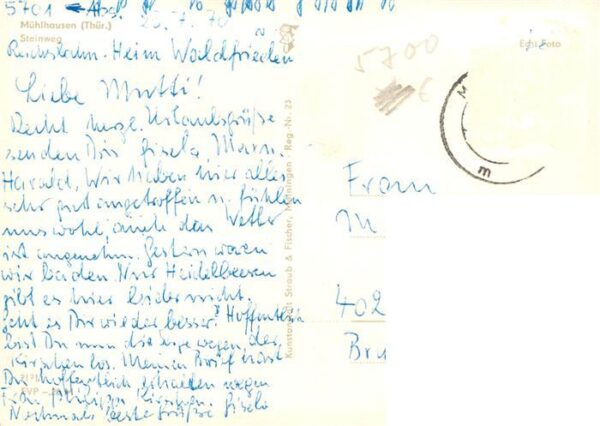 5701 Abs.
Mühlhausen (Thür.)
23.7.70
Steinweg
Reichsbahn-Heim Waldfrieden
Liebe Mutti!
Recht herzl. Urlaubsgrüße
senden Dir Gisela, Mann,
Harald. Wir haben hier alles
sehr gut angetroffen u. fühlen
uns wohl, auch das Wetter
ist angenehm. Gestern waren
wir baden. Nur Heidelbeeren
gibt es hier leider nicht.
Geht es Dir wieder besser? Hoffentlich
bist Du nun die wegen der
Kirschen los. Meinen Brief hast
Du hoffentlich erhalten wegen
Frau Kirschen.
Nochmals beste Grüße Gisela
Kunstanstalt Straub & Fischer, Meiningen · Reg.-Nr. 23
Echt Foto
5700
€
Frau
M
402
Bru